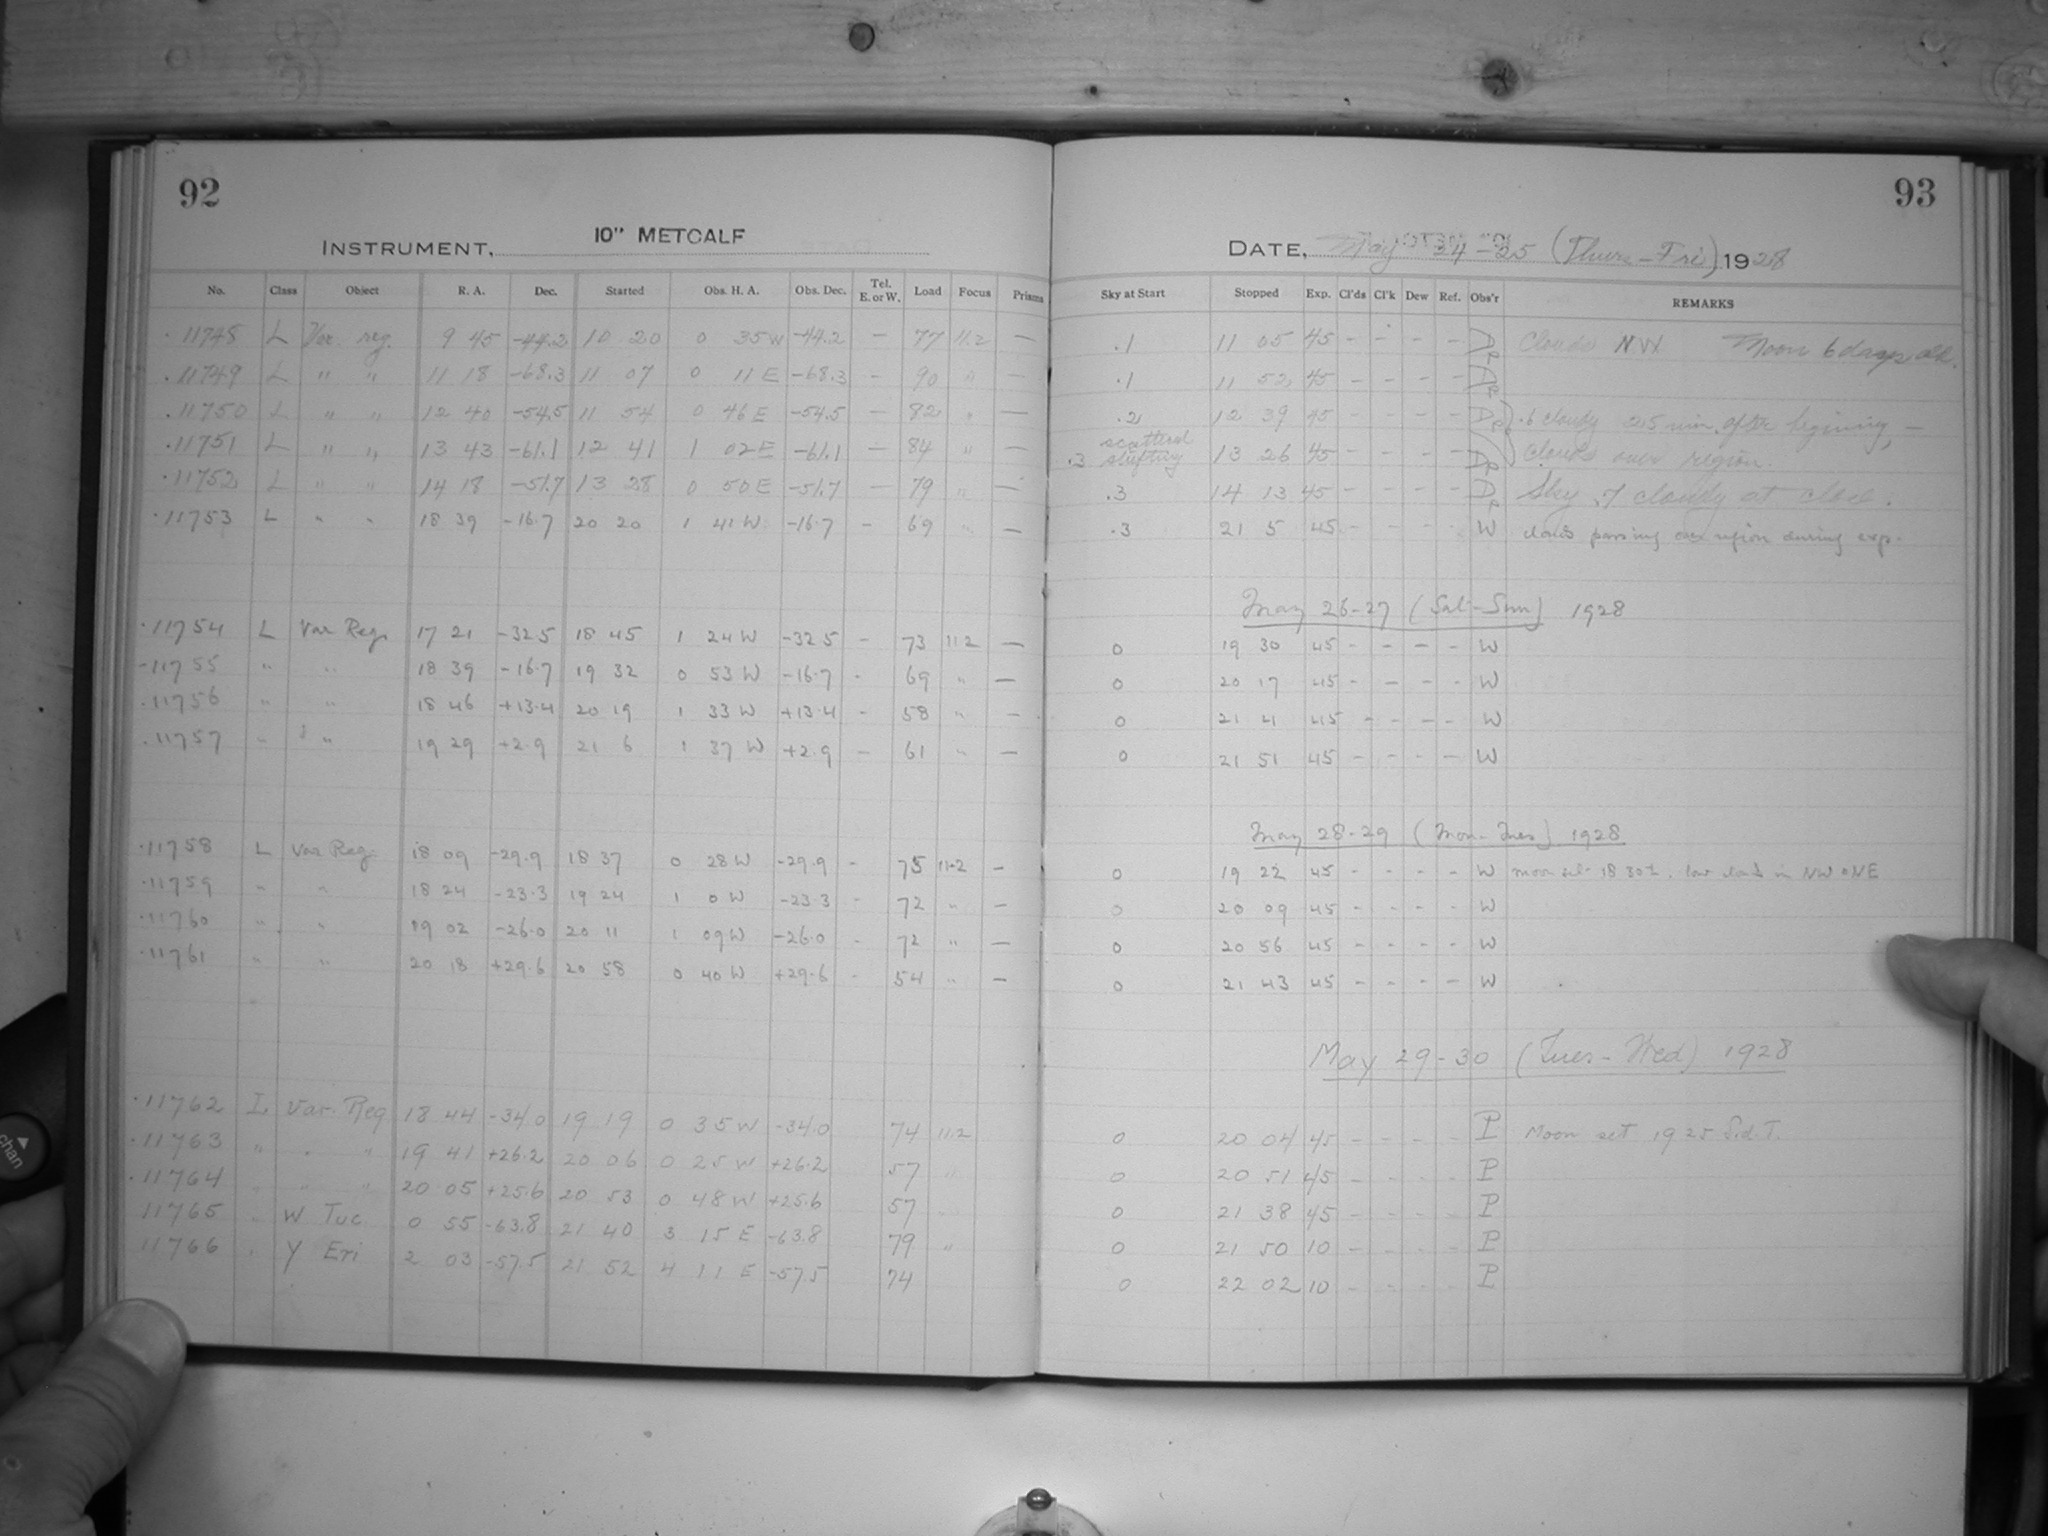 92
INSTRUMENT, 10" METCALF
No. Class Object R. A. Dec. Started Obs. H. A. Obs. Dec. Tel. E. or W. Load Focus Prisms
11748 L Var. reg. 9 45 -44.2 10 20 0 35 W -44.2 — 77 11.2 —
.11749 L " " 11 18 -68.3 11 07 0 11 E -68.3 - 90 " —
.11750 L " " 12 40 -54.5 11 54 0 46 E -54.5 — 82 " —
.11751 L " " 13 43 -61.1 12 41 1 02 E -61.1 — 84 " —
.11752 L " " 14 18 -51.7 13 28 0 50 E -51.7 — 79 " —
.11753 L " " 18 39 -16.7 20 20 1 41 W -16.7 - 69 " —
.11754 L Var Reg. 17 21 -32.5 18 45 1 24 W -32.5 - 73 11.2 —
.11755 " " 18 39 -16.7 19 32 0 53 W -16.7 - 69 " —
.11756 " " 18 46 +13.4 20 19 1 33 W +13.4 - 58 " —
.11757 " " 19 29 +2.9 21 6 1 37 W +2.9 — 61 " —
.11758 L Var Reg. 18 09 -29.9 18 37 0 28 W -29.9 - 75 11.2 -
.11759 " " 18 24 -23.3 19 24 1 0 W -23.3 - 72 " —
.11760 " " 19 02 -26.0 20 11 1 09 W -26.0 - 72 " —
.11761 " " 20 18 +29.6 20 58 0 40 W +29.6 - 54 " —
.11762 L Var. Reg 18 44 -34.0 19 19 0 35 W -34.0 74 11.2
.11763 " " " 19 41 +26.2 20 06 0 25 W +26.2 57 "
.11764 " " " 20 05 +25.6 20 53 0 48 W +25.6 57 "
11765 " W Tuc. 0 55 -63.8 21 40 3 15 E -63.8 79 "
11766 " Y Eri 2 03 -57.5 21 52 4 11 E -57.5 74
93
DATE, May 24-25 (Thurs-Fri) 1928
Sky at Start Stopped Exp. Cl'ds Cl'k Dew Ref. Obs'r REMARKS
.1 11 05 45 - - - - Clouds NW Moon 6 days old.
.1 11 52 45 - - - -
.2 12 39 45 - - - - .6 cloudy 25 min. after begining, —
.3 scattered shifting 13 26 45 - - - - Clouds over region.
.3 14 13 45 - - - - Sky .7 cloudy at close.
.3 21 5 45 - - - - W clouds passing over region during exp.
May 26-27 (Sat-Sun) 1928
0 19 30 45 - - - - W
0 20 17 45 - - - - W
0 21 4 45 - - - - W
0 21 51 45 - - - - W
May 28-29 (Mon-Tues) 1928
0 19 22 45 - - - - W moon set 18 30 low clouds in NW & NE
0 20 09 45 - - - - W
0 20 56 45 - - - - W
0 21 43 45 - - - - W
May 29-30 (Tues-Wed) 1928
0 20 04 45 - - - - P Moon set 19 25 Sid. T.
0 20 51 45 - - - - P
0 21 38 45 - - - - P
0 21 50 10 - - - - P
0 22 02 10 - - - - P